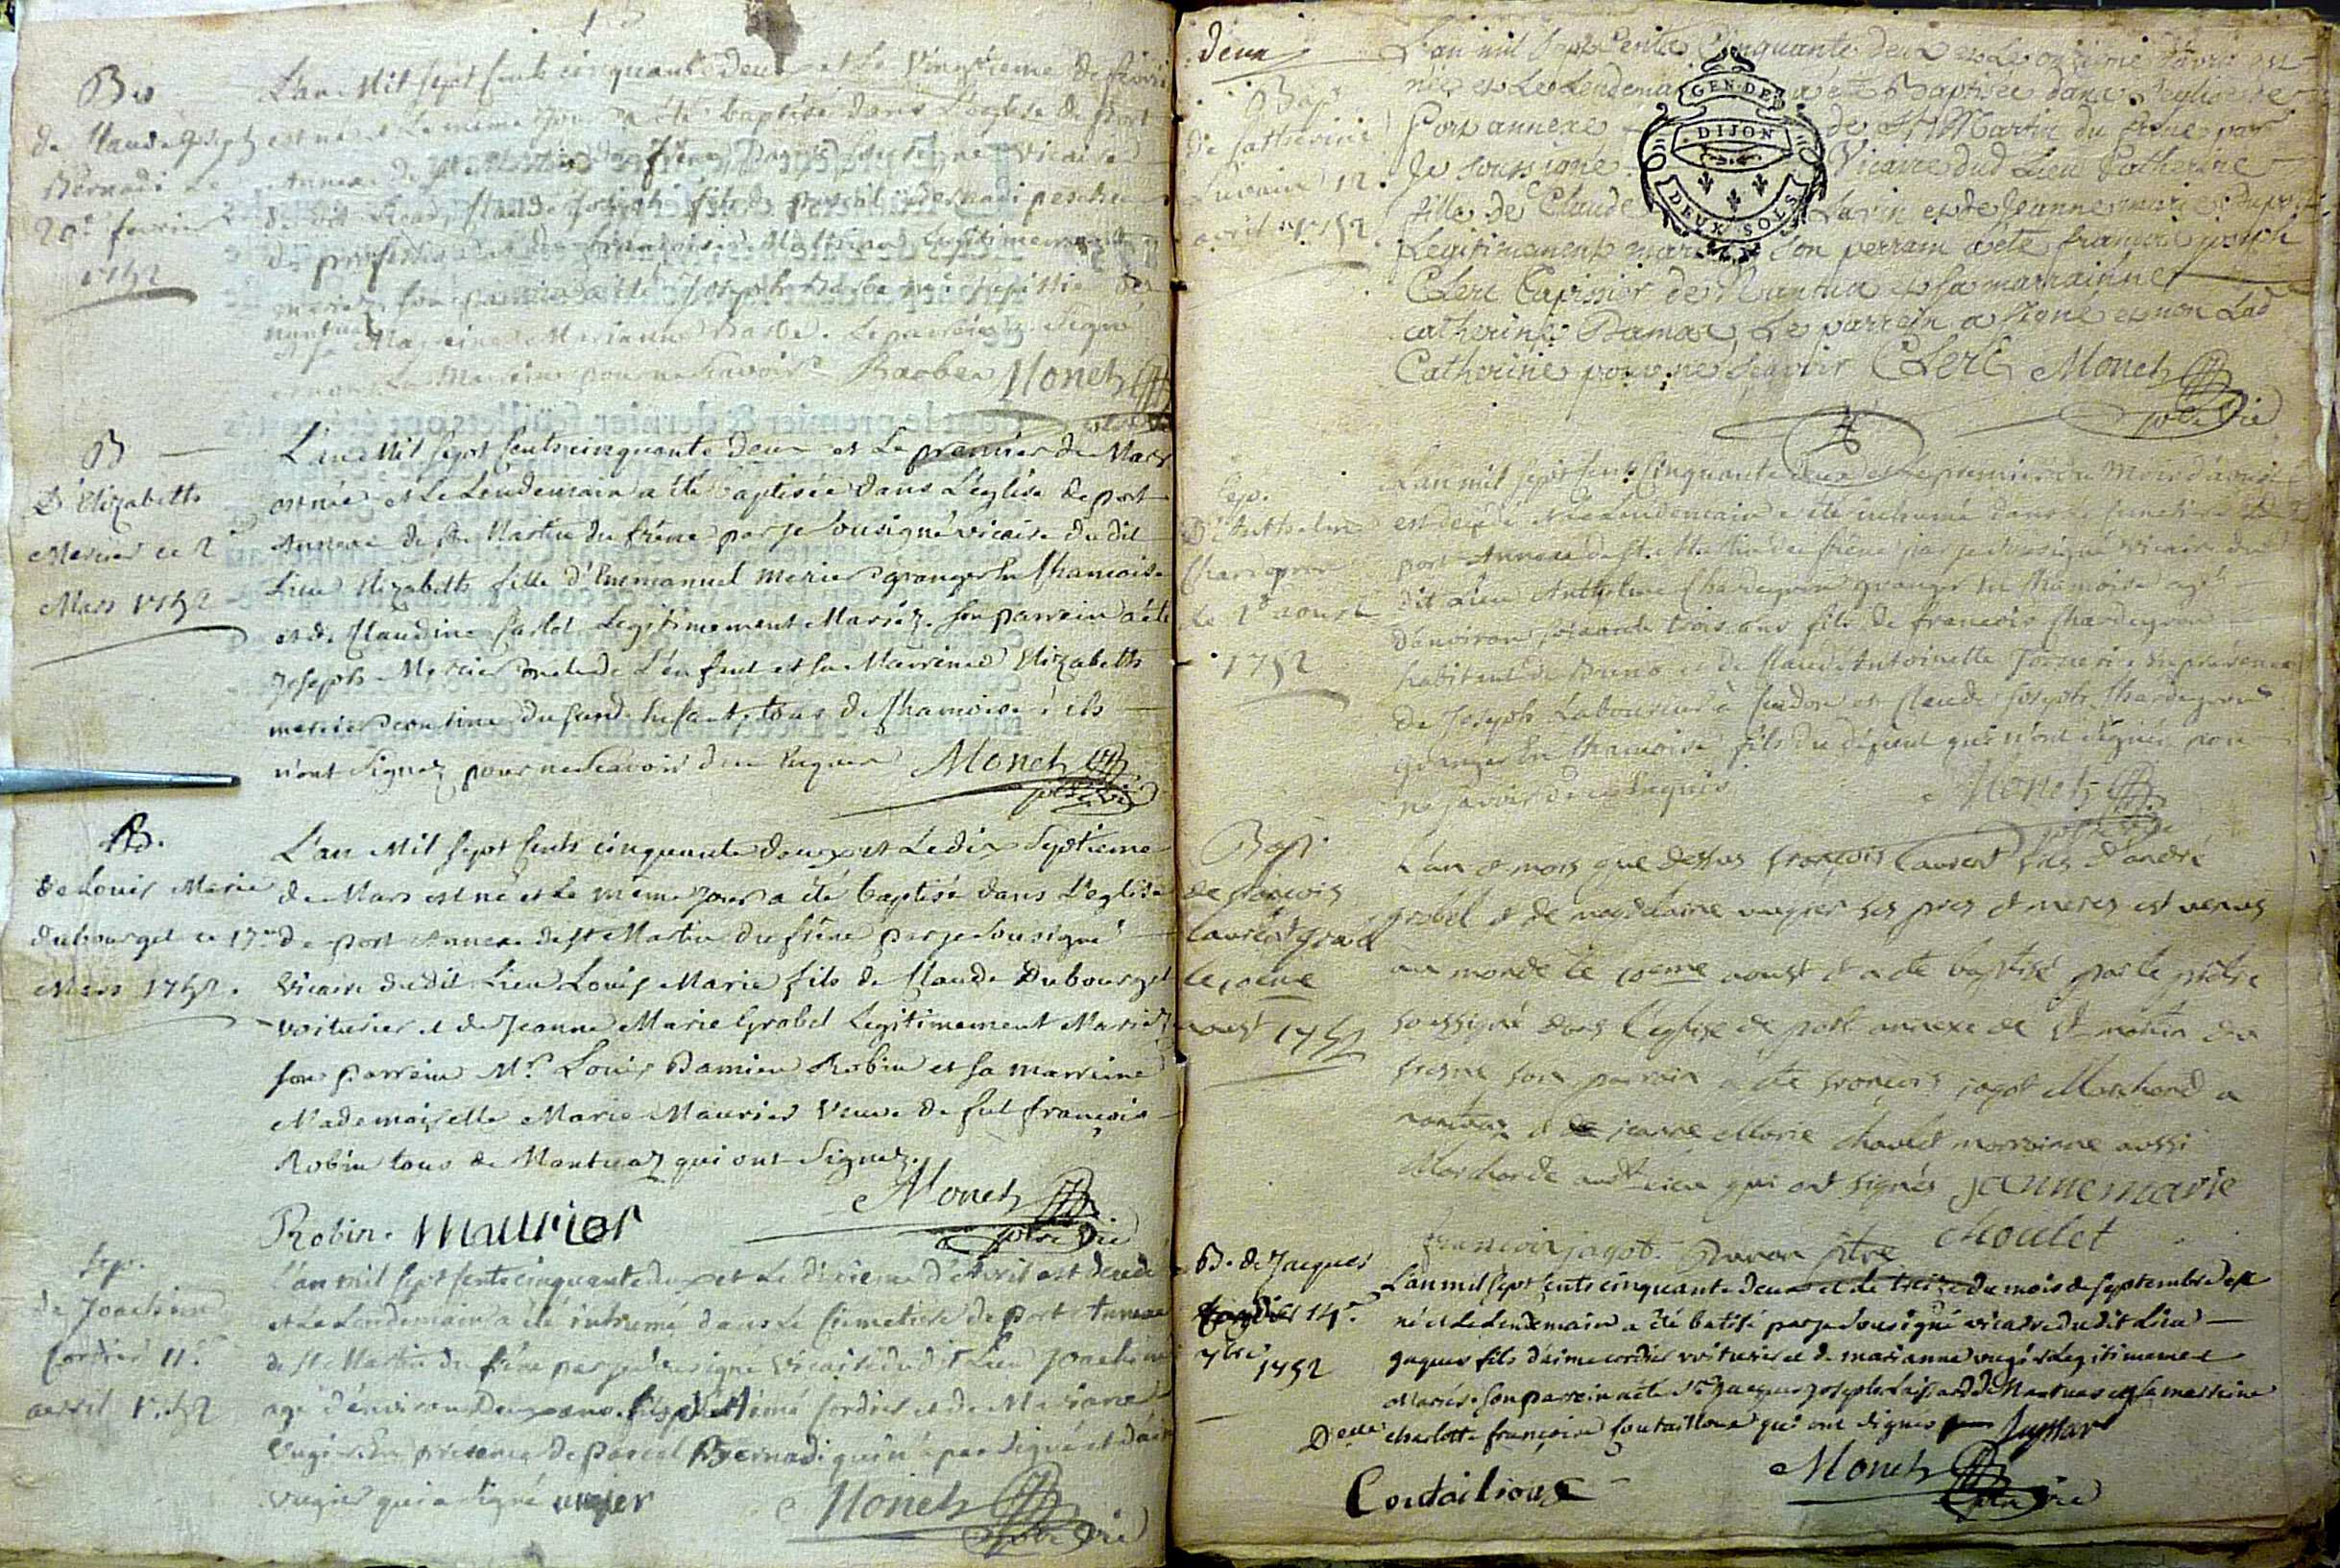 Bap
de Claude Joseph
Bernadi Le
20e fevrier
1752
L'an Mil sept cents cinquante deux et Le vingtieme de fevrier
est né et Le même jour a été baptisé dans L'eglise de Port
Annexe de St Martin du frêne par je sousigné vicaire
du dit Lieu, Claude Joseph fils de pascal Bernadi pescheur
de profession et de francoise Legitimement
mariez, son parrain a été Joseph Barbe
nantua et sa Marraine Marianne Barbe. Le parrein a signé
et non La Marraine pour ne sçavoir Barbe Monet
ptre vic
B
D'Elizabeth
Mercier ce 2
Mars 1752
L'an Mil sept cents cinquante deux et Le premier de Mars
est née et Le Lendemain a été baptisée dans L'eglise de port
Annexe de St Martin du frêne par je sousigné vicaire du dit
Lieu Elizabeth fille d'Emmanuel Mercier granger en Chamoise
et de Claudine Carlet Legitimement Mariéz. son parrein a été
Joseph Mercier oncle de L'enfant et sa Marreine Elizabeth
mercier cousine du sud. enfant, tous de Chamoise ; ils
n'ont signez pour ne sçavoir de ce enquis Monet
ptre vic
B.
de Louis Marie
dubourget ce 17me
Mars 1752.
L'an Mil sept cents cinquante deux et Le dix septieme
de Mars est né et Le même jour a été baptisé dans L'eglise
de port Annexe de St Martin du frêne par je sousigné
vicaire du dit Lieu Louis Marie fils de Claude Dubourget
voiturier et de Jeanne Marie Grobel Legitimement Mariez
son parrein Mr. Louis Damien Robin et sa marreine
Mademoiselle Marie Maurier veuve de fut francois
Robin tous de Nantuaz qui ont signez.
Monet
Robin. Maurier ptre vic
Sep.
de Joachim
Cordier 11e
avril 1752
L'an mil sept cents cinquante deux et Le dixieme d'Avril est decedé
et Le Lendemain a été inhumé dans Le Cimetiere de Port Annexe
de St Martin du frêne par je sousigné vicaire du dit Lieu Joachim
agé d'environ Deux ans fils d'Aimé Cordier et de Mariane
Vugier En presence de pascal Bernadi qui n'a pas signé et d'aimé
vugier qui a signé vugier Monet
ptre vic
deux
Bap
de Catherine
Lavain 12
avril 1752
L'an mil sept Cents Cinquante deux et Le onzieme d'avril est
née et Le Lendemain a été Baptisée dans L'eglise de
Port annexe de St Martin du frêne par
Je soussigné Vicaire dud Lieu Catherine
fille de Claude et de Jeanne marie
Legitimement mariés Son parrain a été francois joseph
Clerc Tapissier de Nantua et sa marrainne
catherine Damas, Le parrein a signé et non Lad
Catherine pour ne sçavoir Clerc Monet
ptre vic
GEN. DE
DIJON
DEUX SOLS
Sep.
D'Anthelme
Chardeyron
Le 1er aoust
1752
L'an mil sept cents Cinquante deux et Le premier du Mois d'aoust
est decedé et Le Lendemain a été inhumé dans Le cimetiere de
port Annexe de St Martin du frêne par je sousigné vicaire du
dit Lieu Anthelme Chardeyron granger en Chamoise agé
d'environ soixante trois ans fils de francois Chardeyron
habitant de Brenod et de Claude Antoinette en presence
de Joseph Laboureur à Cerdon et Claude Joseph Chardeyron
granger en Chamoise fils du défunt qui n'ont signés pour
ne savoir de ce enquis Monet
ptre vic
Bapt.
de françois
laurent grobel
le 10eme
aoust 1752
L'an & mois que dessus françois Laurent fils d'andré
grobel & de magdelaine vugier ses pres & meres est venus
au monde le 10eme aoust & a été baptisé par le prêtre
soussigné dans l'eglise de port annexe de St martin du
fresne son parrain a été françois jagot Marchand a
nantuaz & de jeanne Marie Choulet marrainne aussi
Marchande audt lieu qui ont signés jeanne marie
francois jagot. ptre Choulet
B. de Jacques
Cordier 14e
7bre
1752
L'an mil sept cents cinquante deux et Le treize du mois de septembre est
né et Le Lendemain a été batisé par je sousigné vicaire du dit Lieu
Jaques fils d'aimé cordier voiturier et de marianne vugier Legitimement
Mariés. Son parrein a été Sr Jaques Joseph Jaissard de Nantuas et sa marreine
Delle charlotte francoise Coutailloux qui ont signés
Monet
Coutailloux ptre vic